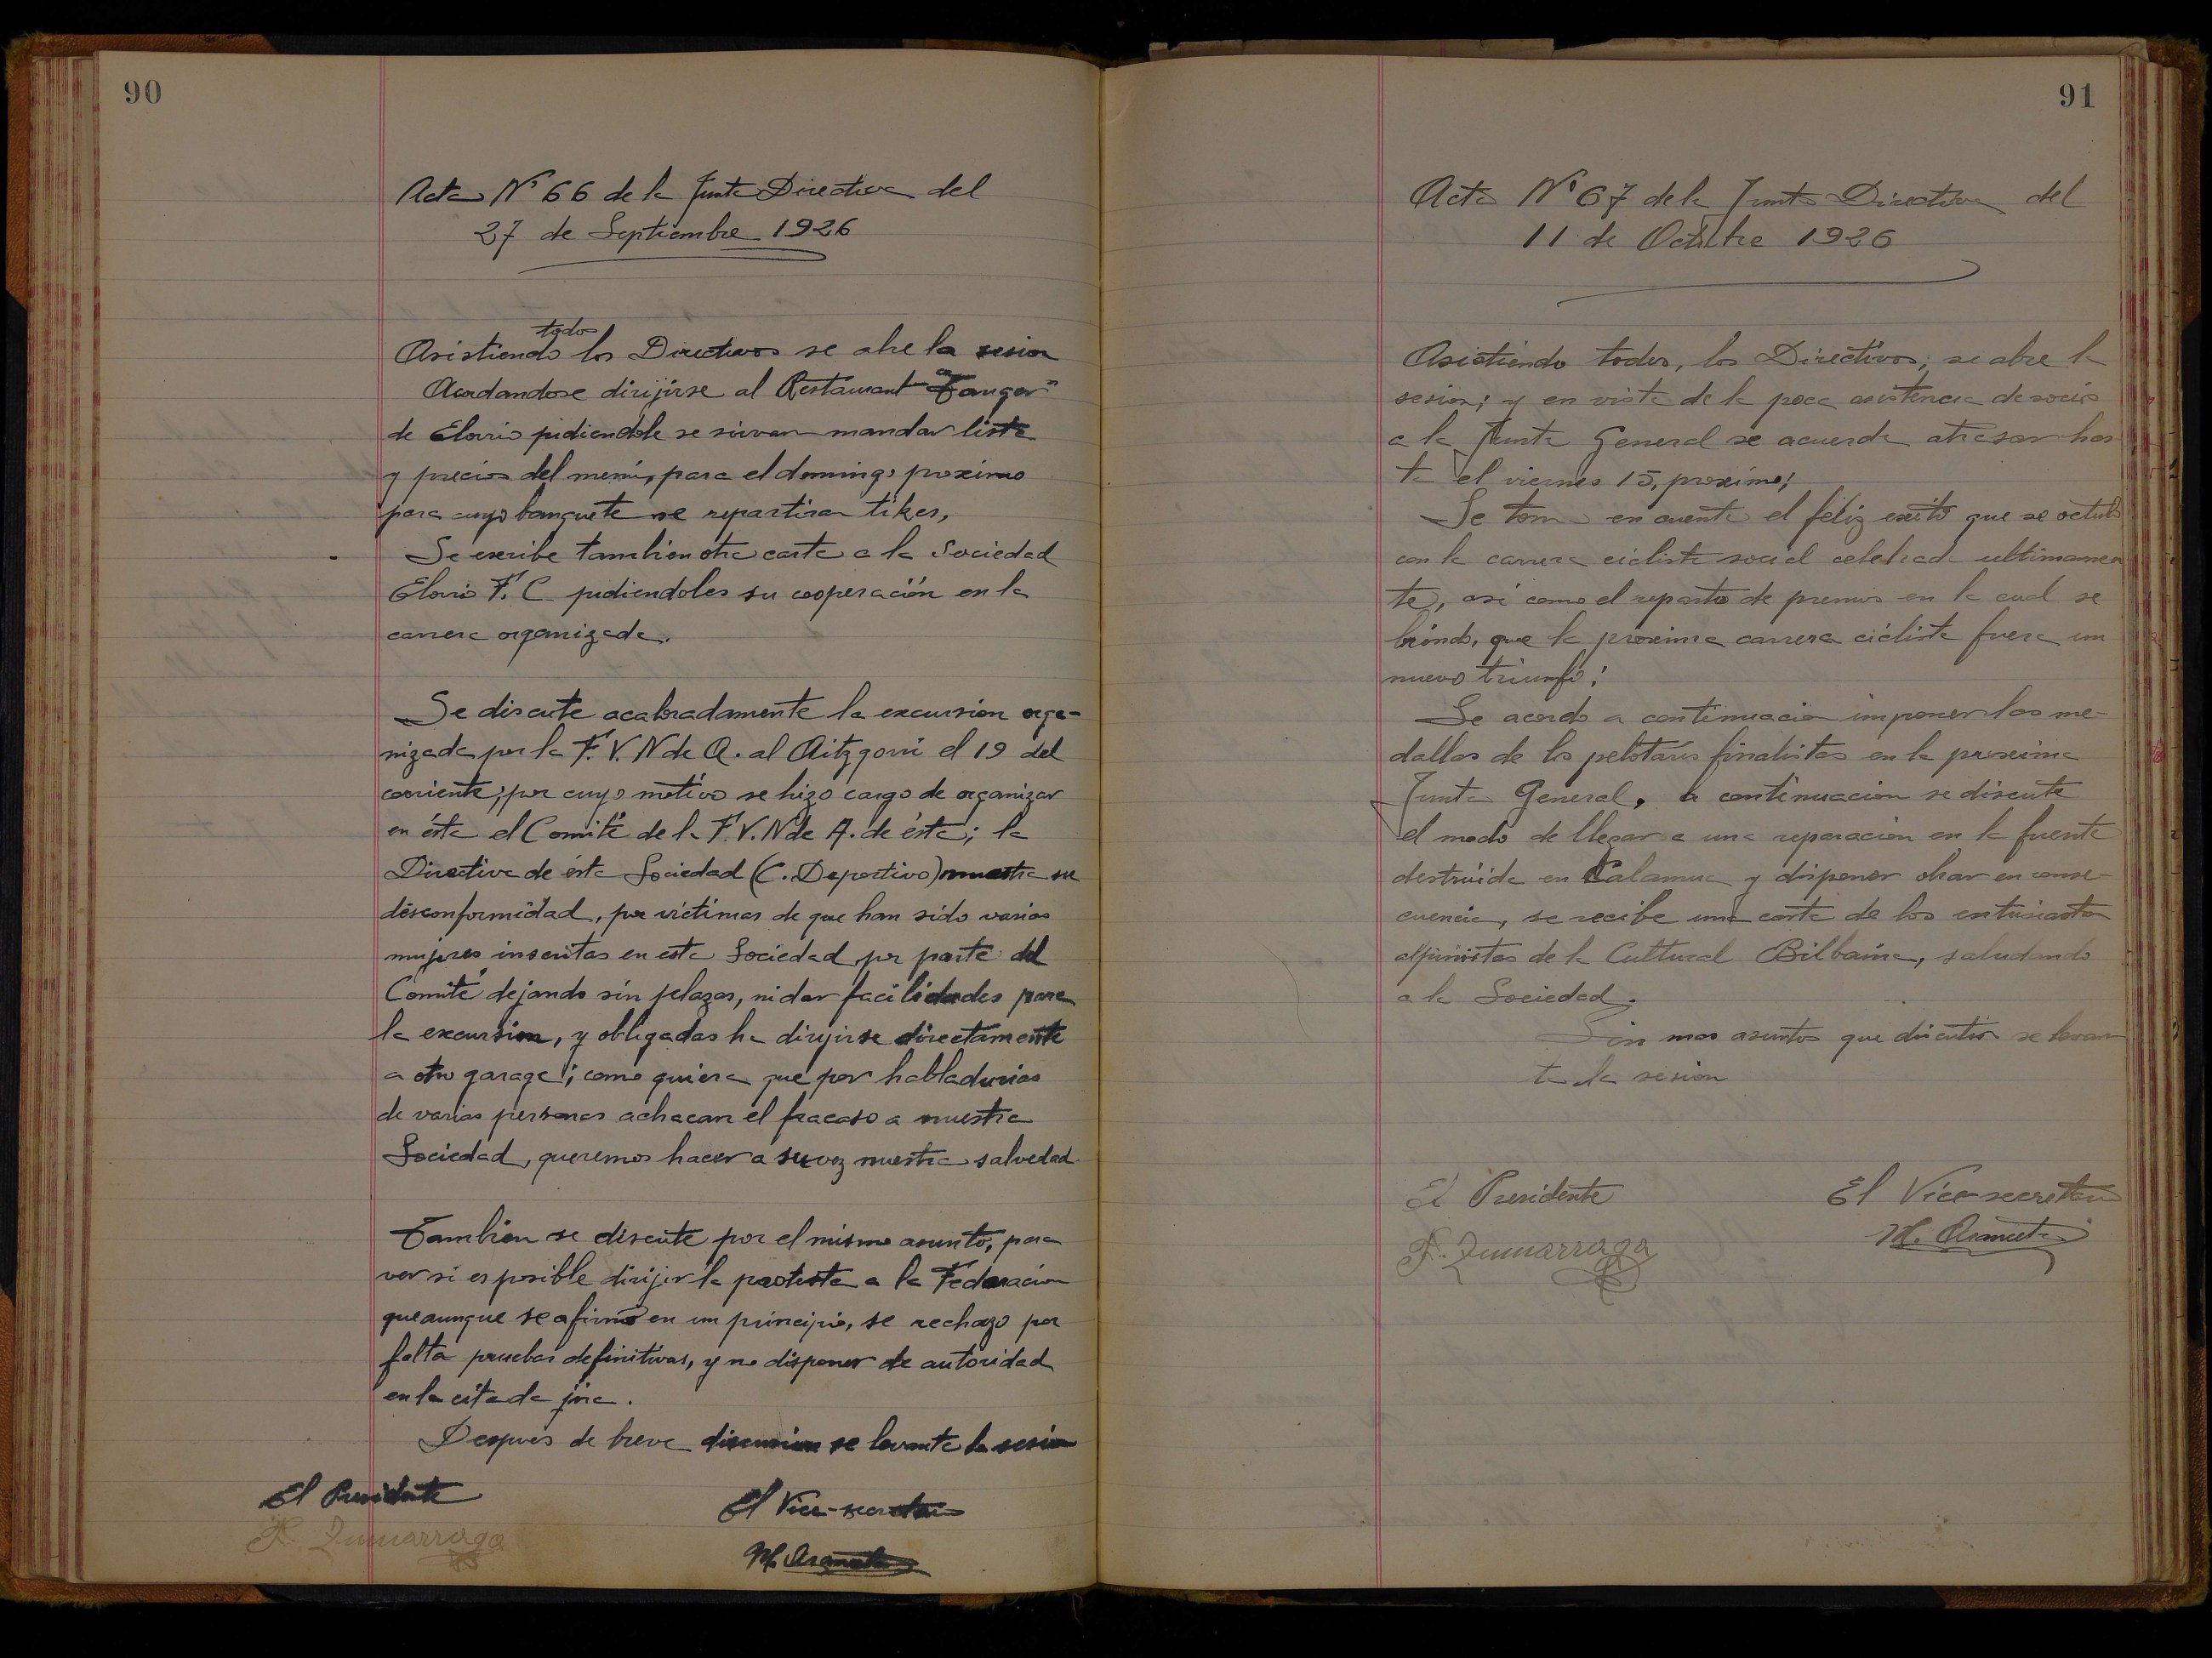 90
Acta Nº 66 de la Junta Directiva del
27 de Septiembre 1926
todos
Asistiendo los Directivos se abre la sesion
Acordandose dirijirse al Restaurant "Tanger"
de Elorrio pidiendole se sirvan mandar lista
y precios del menú, para el domingo proximo
para cuyo banquete se repartiran tikes,
Se escribe tambien otra carta a la Sociedad
Elorrio F. C pidiendoles su cooperación en la
carrera organizada.
Se discute acaloradamente la excursion orga-
nizada por la F. V. N de A. al Aitzgorri el 19 del
corriente; por cuyo motivo se hizo cargo de organizar
en ésta el Comité de la F. V. N de A. de ésta; la
Directiva de ésta Sociedad (C. Deportivo) muestra su
desconformidad, por victimas de que han sido varias
mujeres inscritas en esta Sociedad por parte del
Comité dejando sin plazas, ni dar facilidades para
la excursion, y obligadas ha dirijirse directamente
a otro garage; como quiera que por habladurias
de varias personas achacan el fracaso a nuestra
Sociedad, queremos hacer a su vez nuestra salvedad.
Tambien se discute por el mismo asunto, para
ver si es posible dirijir la protesta a la Federacion
que aunque se afirmó en un principio, se rechazo por
falta pruebas definitivas, y no disponer de autoridad
en la citada jira.
Después de breve discusion se levanta la sesion
El Presidente
El Vice-secretario
F. Zumarraga
M. Aramata
91
Acta Nº 67 de la Junta Directiva del
11 de Octubre 1926
Asistiendo todos, los Directivos; se abre la
sesion; y en vista de la poca asistencia de socios
a la Junta General se acuerda atrasar has
ta el viernes 15, proximo;
Se toma en cuenta el feliz exito que se octubo
con la carrera ciclista social celebrada ultimamen
te, asi como el reparto de premios en la cual se
brindo, que la proxima carrera ciclista fuera un
nuevo triunfo;
Se acordo a continuacion imponer las me-
dallas de los pelotaris finalistas en la proxima
Junta General, a continuacion se discute
el modo de llegar a una reparacion en la fuente
destruida en Calamua y disponer obrar en conse-
cuencia, se recibe una carta de los entusiastas
alpinistas de la Cultural Bilbaina, saludando
a la Sociedad.
Sin mas asuntos que discutir se levan
ta la sesion
El Presidente
El Vice-secretario
F. Zumarraga
M. Aramata